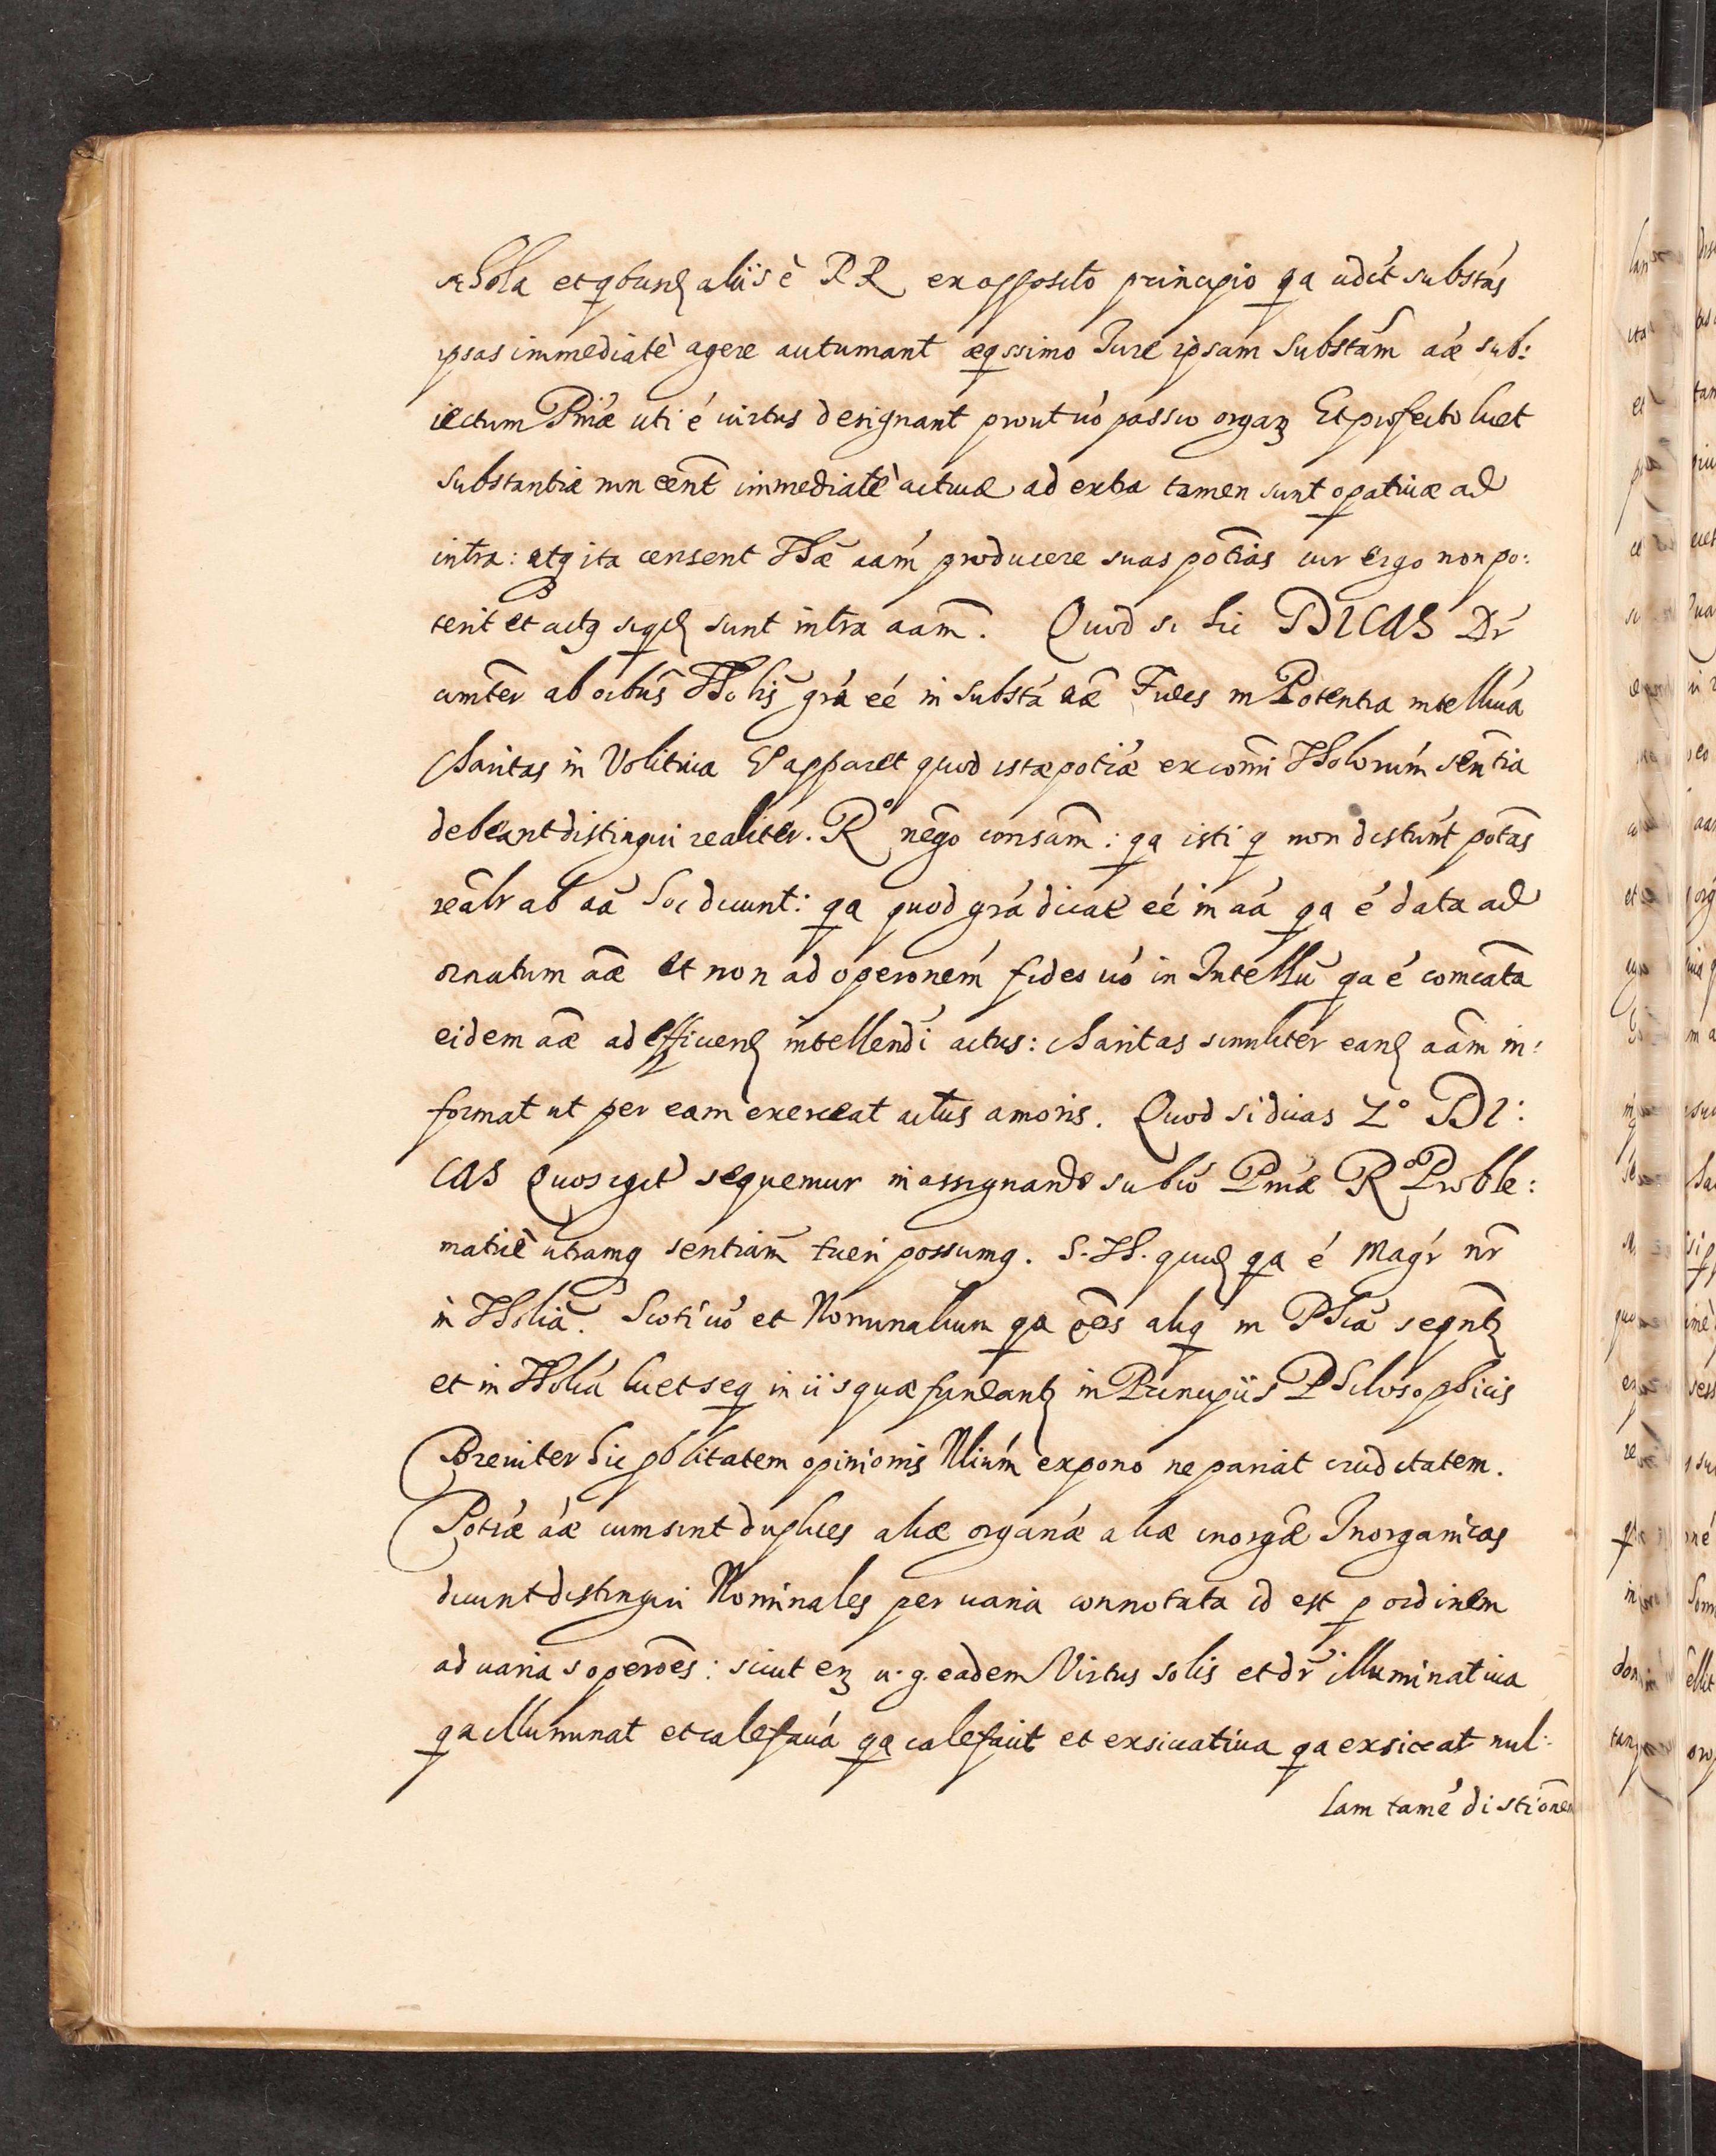 schola et qbusd aliis è RR ex opposito principio qa udět substás
ipsas immediatè agere autumant æqssimo Jure ipsam Substãm aæ sub:
iectum Pmæ uti é uirtus designant prout uó passio organ Et profecto licet
substantiæ non eent̃ immediatè actiuæ ad extra tamen sunt opatiuæ ad
intra: atq ita censent Thæ aám producere suas potĩas cur ergo non po:
terit et actq siqd sunt intra aam̃. Quod si hic DICAS Dr̃
comter ab oĩbus Tholis grá eé in substá aæ Fides in Potentia intelliua
Charitas in Volitiua Et apparet quod istæ potiæ ex comĩ Tholorúm senĩtia
debeant distingui realiter. Rº nẽgo consam̃: qa isti q non distúnt potãs
reãlr ab aã hoc dicunt: qa quod grá dicat eé in aá qa é data ad
ornatum aæ et non ad operonem fides uó in Intellũ qa é comcata
eidem aæ ad efficiend intellendi actus: Charitas similiter eand aãm in:
format ut per eam exerceat actus amoris. Quod si dicas 2º DI:
CAS Quos igit sequemur in assignando subió Pmæ Rº Proble:
maticè utramq sentiam̃ tueri possumq. S. Th. quid qa é Mag'r nr̃
in Tholiã. Scoti uó et Nominalium qa oẽs aliq in Phiã seqnt̃
et in Tholiá licet seq in iis quæ fundant in Principiis Philosophicis
Breuiter hic pblitatem opinionis Nlium expono ne pariat cruditatem.
Potiæ áæ cum sint duplices aliæ organæ aliæ inorgæ̃ Inorganicas
dicunt distingui Nominales per uaria connotata id est p ordinem
ad uarias operões: sicut en u. g. eadem Virtus solis et dr̃ illuminatiua
qa illuminat et calefaciúa qa calefacit et exsiccatiua qa exsiccat nul:
lam tamé distiõnem